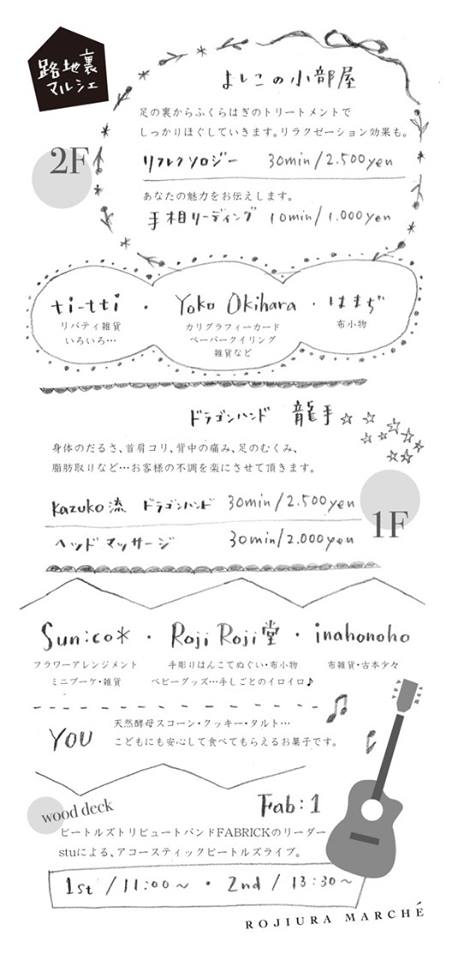 路地裏
マルシェ
よしこの小部屋
足の裏からふくらはぎのトリートメントで
しっかりほぐしていきます。リラクゼーション効果も。
2F
リフレクソロジー 30min/2.500yen
あなたの魅力をお伝えします。
手相リーディング 10min/1.000yen
ti-tti ・ Yoko Okihara ・ はまぢ
リバティ雑貨
いろいろ…
カリグラフィーカード
ペーパークイリング
雑貨など
布小物
ドラゴンハンド 龍手
身体のだるさ、首肩コリ、背中の痛み、足のむくみ、
脂肪取りなど…お客様の不調を楽にさせて頂きます。
Kazuko流 ドラゴンハンド 30min/2.500yen
1F
ヘッドマッサージ 30min/2.000yen
Sun:co* ・ Roji Roji堂 ・ inahonoho
フラワーアレンジメント
ミニブーケ・雑貨
手彫りはんこてぬぐい・布小物
ベビーグッズ…手しごとのイロイロ♪
布雑貨・古本少々
YOU
天然酵母スコーン・クッキー・タルト…
こどもにも安心して食べてもらえるお菓子です。
wood deck
Fab:1
ビートルズトリビュートバンドFABRICKのリーダー
stuによる、アコースティックビートルズライブ。
1st / 11:00〜 ・ 2nd / 13:30〜
ROJIURA MARCHÉ